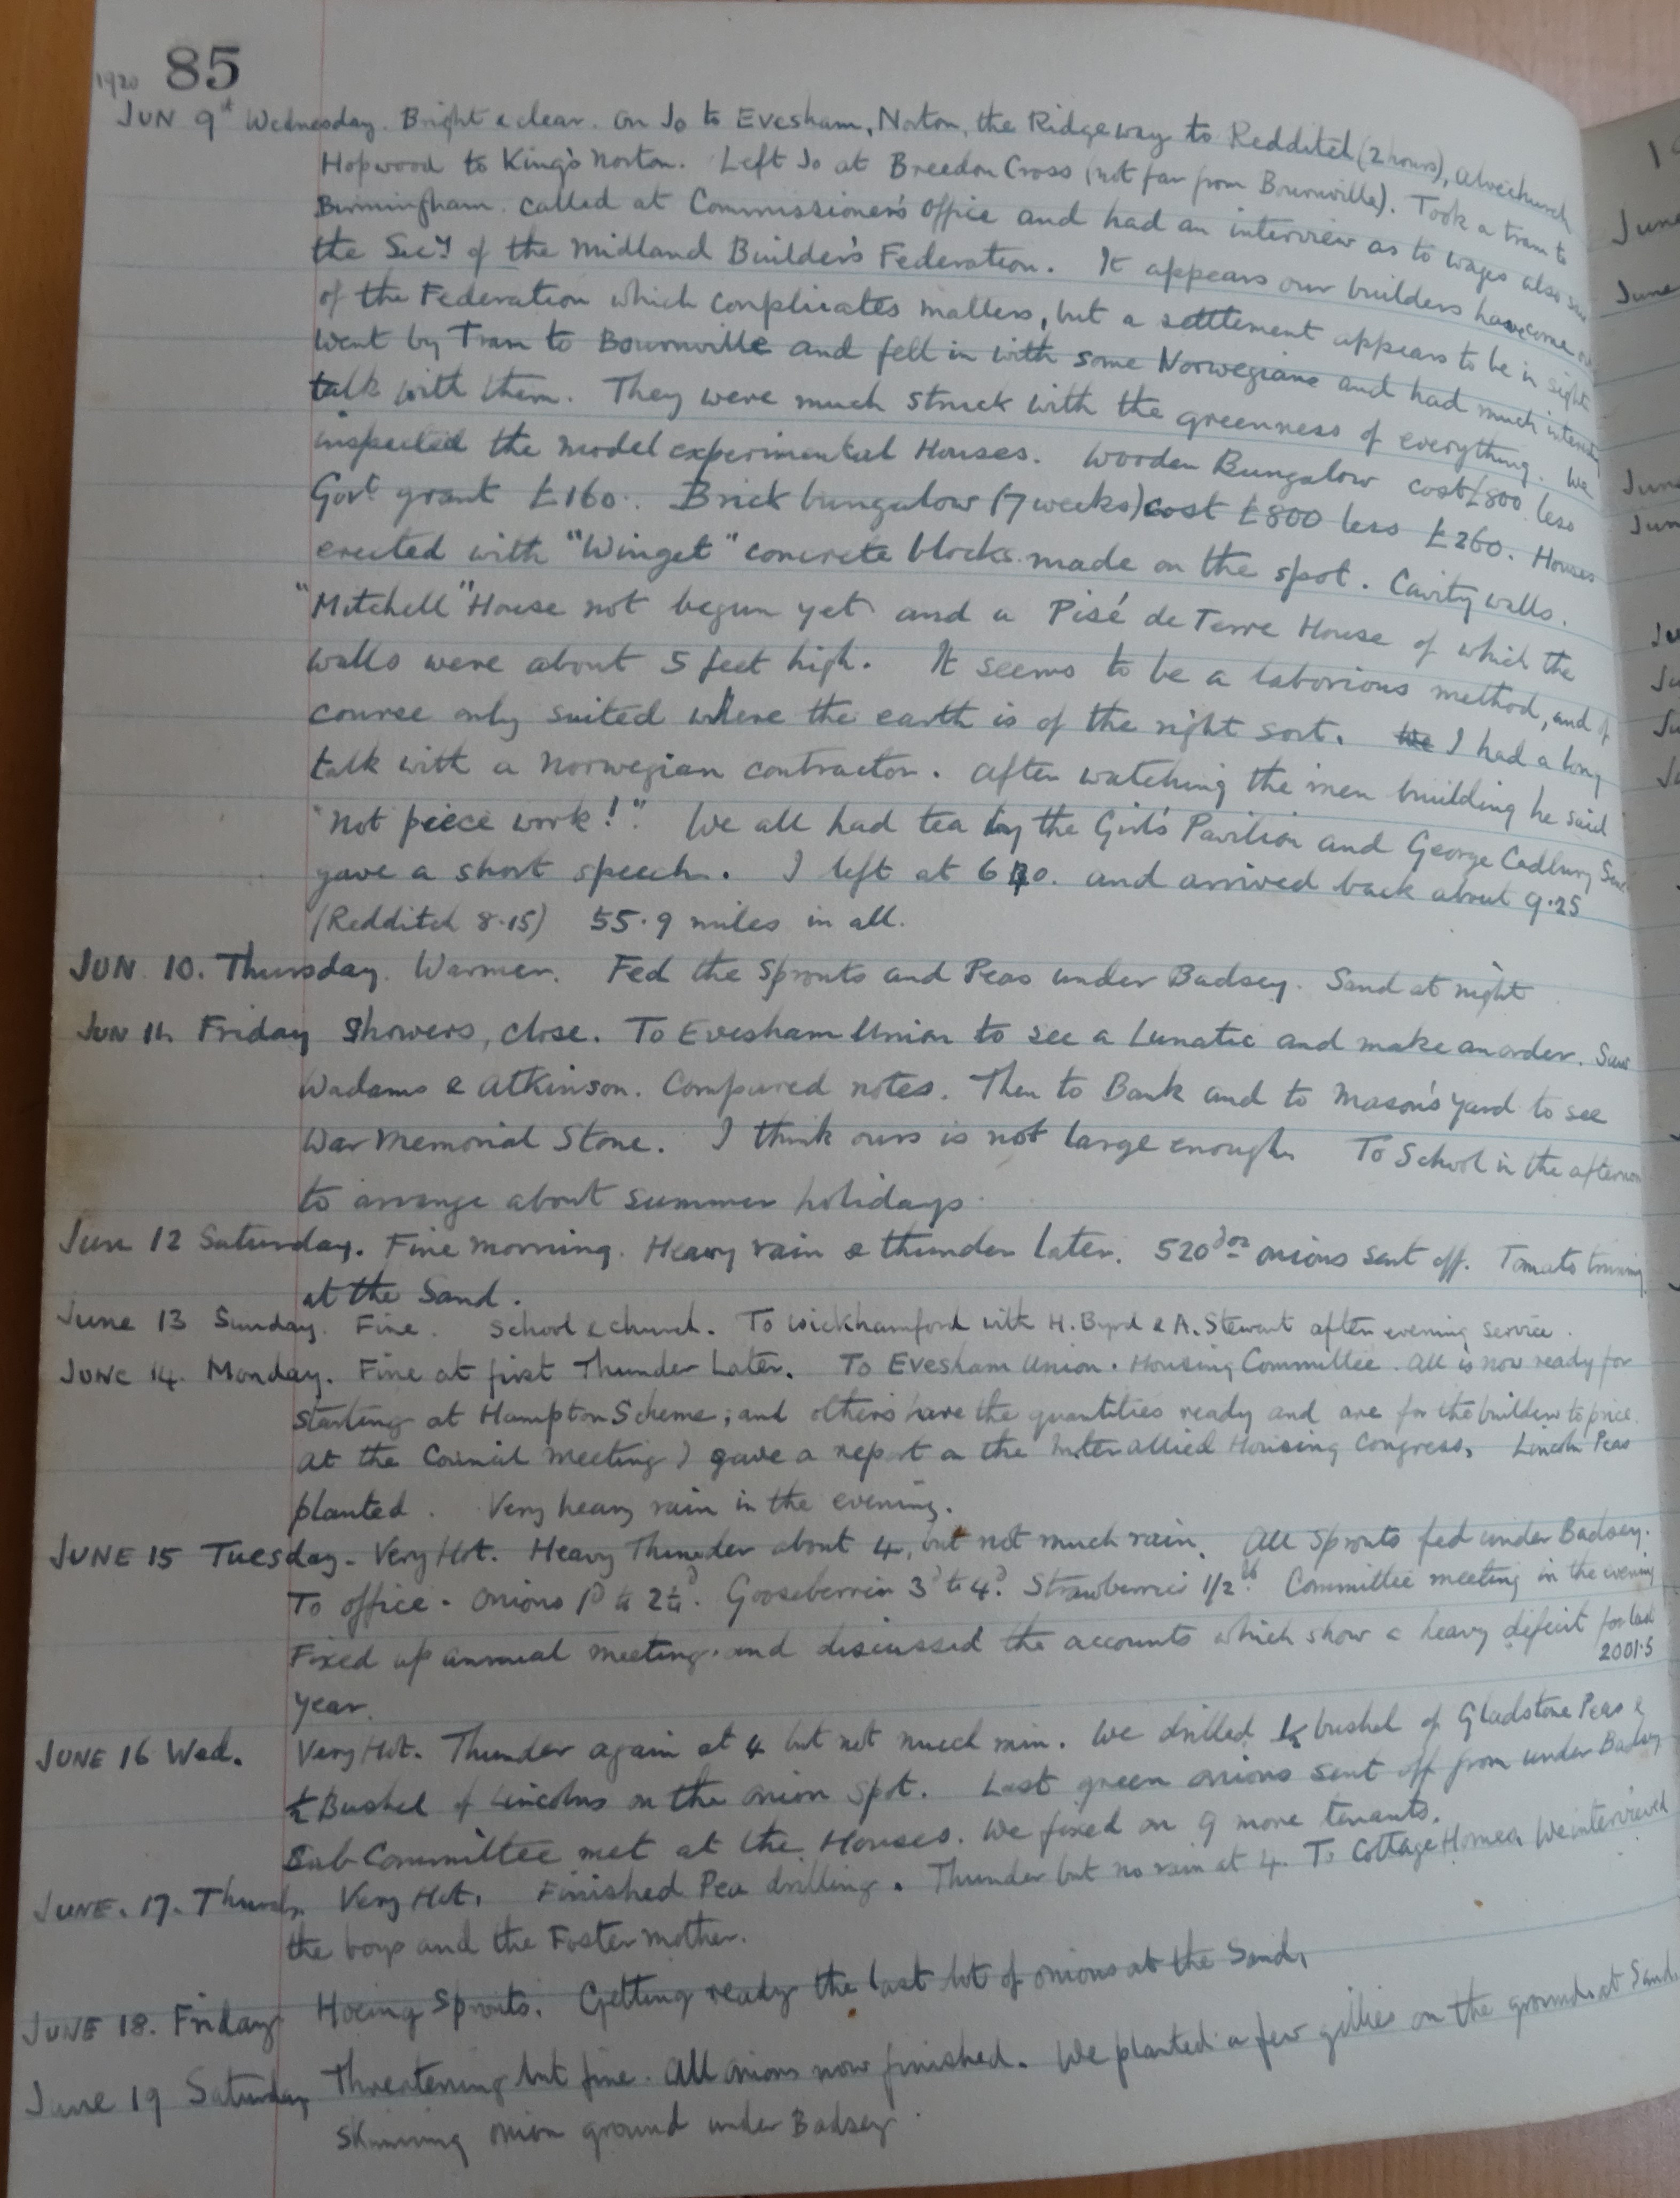 1920 85
JUN 9th Wednesday. Bright & clear. On Jo to Evesham, Norton, the Ridgeway to Redditch (2 hours), Alvechurch
Hopwood to King's Norton. Left Jo at Breedon Cross (not far from Bournville). Took a tram to
Birmingham. Called at Commissioner's Office and had an interview as to wages also saw
the Secy of the Midland Builder's Federation. It appears our builders have come out
of the Federation which complicates matters, but a settlement appears to be in sight.
Went by Tram to Bournville and fell in with some Norwegians and had much interesting
talk with them. They were much struck with the greenness of everything. We
inspected the model experimental Houses. Wooden Bungalow cost £800 less
Govt grant £160. Brick bungalow (7 weeks) cost £800 less £260. Houses
erected with "Winget" concrete blocks made on the spot. Cavity walls.
"Mitchell" House not begun yet and a Pisé de Terre House of which the
walls were about 5 feet high. It seems to be a laborious method, and of
course only suited where the earth is of the right sort. We I had a long
talk with a Norwegian contractor. After watching the men building he said
"Not piece work!" We all had tea by the Girl's Pavilion and George Cadbury Senr
gave a short speech. I left at and arrived back about 9.25
(Redditch 8.15) 55.9 miles in all.
JUN 10. Thursday. Warmer. Fed the Sprouts and Peas under Badsey. Sand at night
JUN 11. Friday Showers, close. To Evesham Union to see a Lunatic and make an order. Saw
Wadams & Atkinson. Compared notes. Then to Bank and to Mason's yard to see
War Memorial Stone. I think ours is not large enough. To School in the afternoon
to arrange about summer holidays.
Jun 12 Saturday. Fine morning. Heavy rain & thunder later. 520 doz onions sent off. Tomato trimming
at the Sand.
June 13 Sunday. Fine. School & church. To Wickhamford with H. Byrd & A. Stewart after evening service.
JUNE 14. Monday. Fine at first Thunder Later. To Evesham Union. Housing Committee. All is now ready for
starting at Hampton Scheme; and others have the quantities ready and are for the builders to price.
At the Council Meeting I gave a report on the Inter Allied Housing Congress. Lincoln Peas
planted. Very heavy rain in the evening.
JUNE 15 Tuesday. Very Hot. Heavy Thunder about 4, but not much rain. All Sprouts fed under Badsey.
To office. Onions 1d to 2¼d. Gooseberries 3d to 4d. Strawberries 1/2 lb. Committee meeting in the evening
Fixed up annual meeting and discussed the accounts which show a heavy deficit for last
2001.5
year.
JUNE 16 Wed. Very Hot. Thunder again at 4 but not much rain. We drilled bushel of Gladstone Peas &
½ Bushel of Lincolns on the onion spot. Last green onions sent off from under Badsey
Sub-Committee met at the Houses. We fixed on 9 more tenants.
JUNE. 17. Thurs. Very Hot. Finished Pea drilling. Thunder but no rain at 4. To Cottage Homes. We interviewed
the boys and the Foster mother.
JUNE 18. Friday Hoeing Sprouts. Getting ready the last lot of onions at the Sand.
June 19 Saturday Threatening but fine. All onions now finished. We planted a few gillies on the ground at Sand.
Skimming onion ground under Badsey.